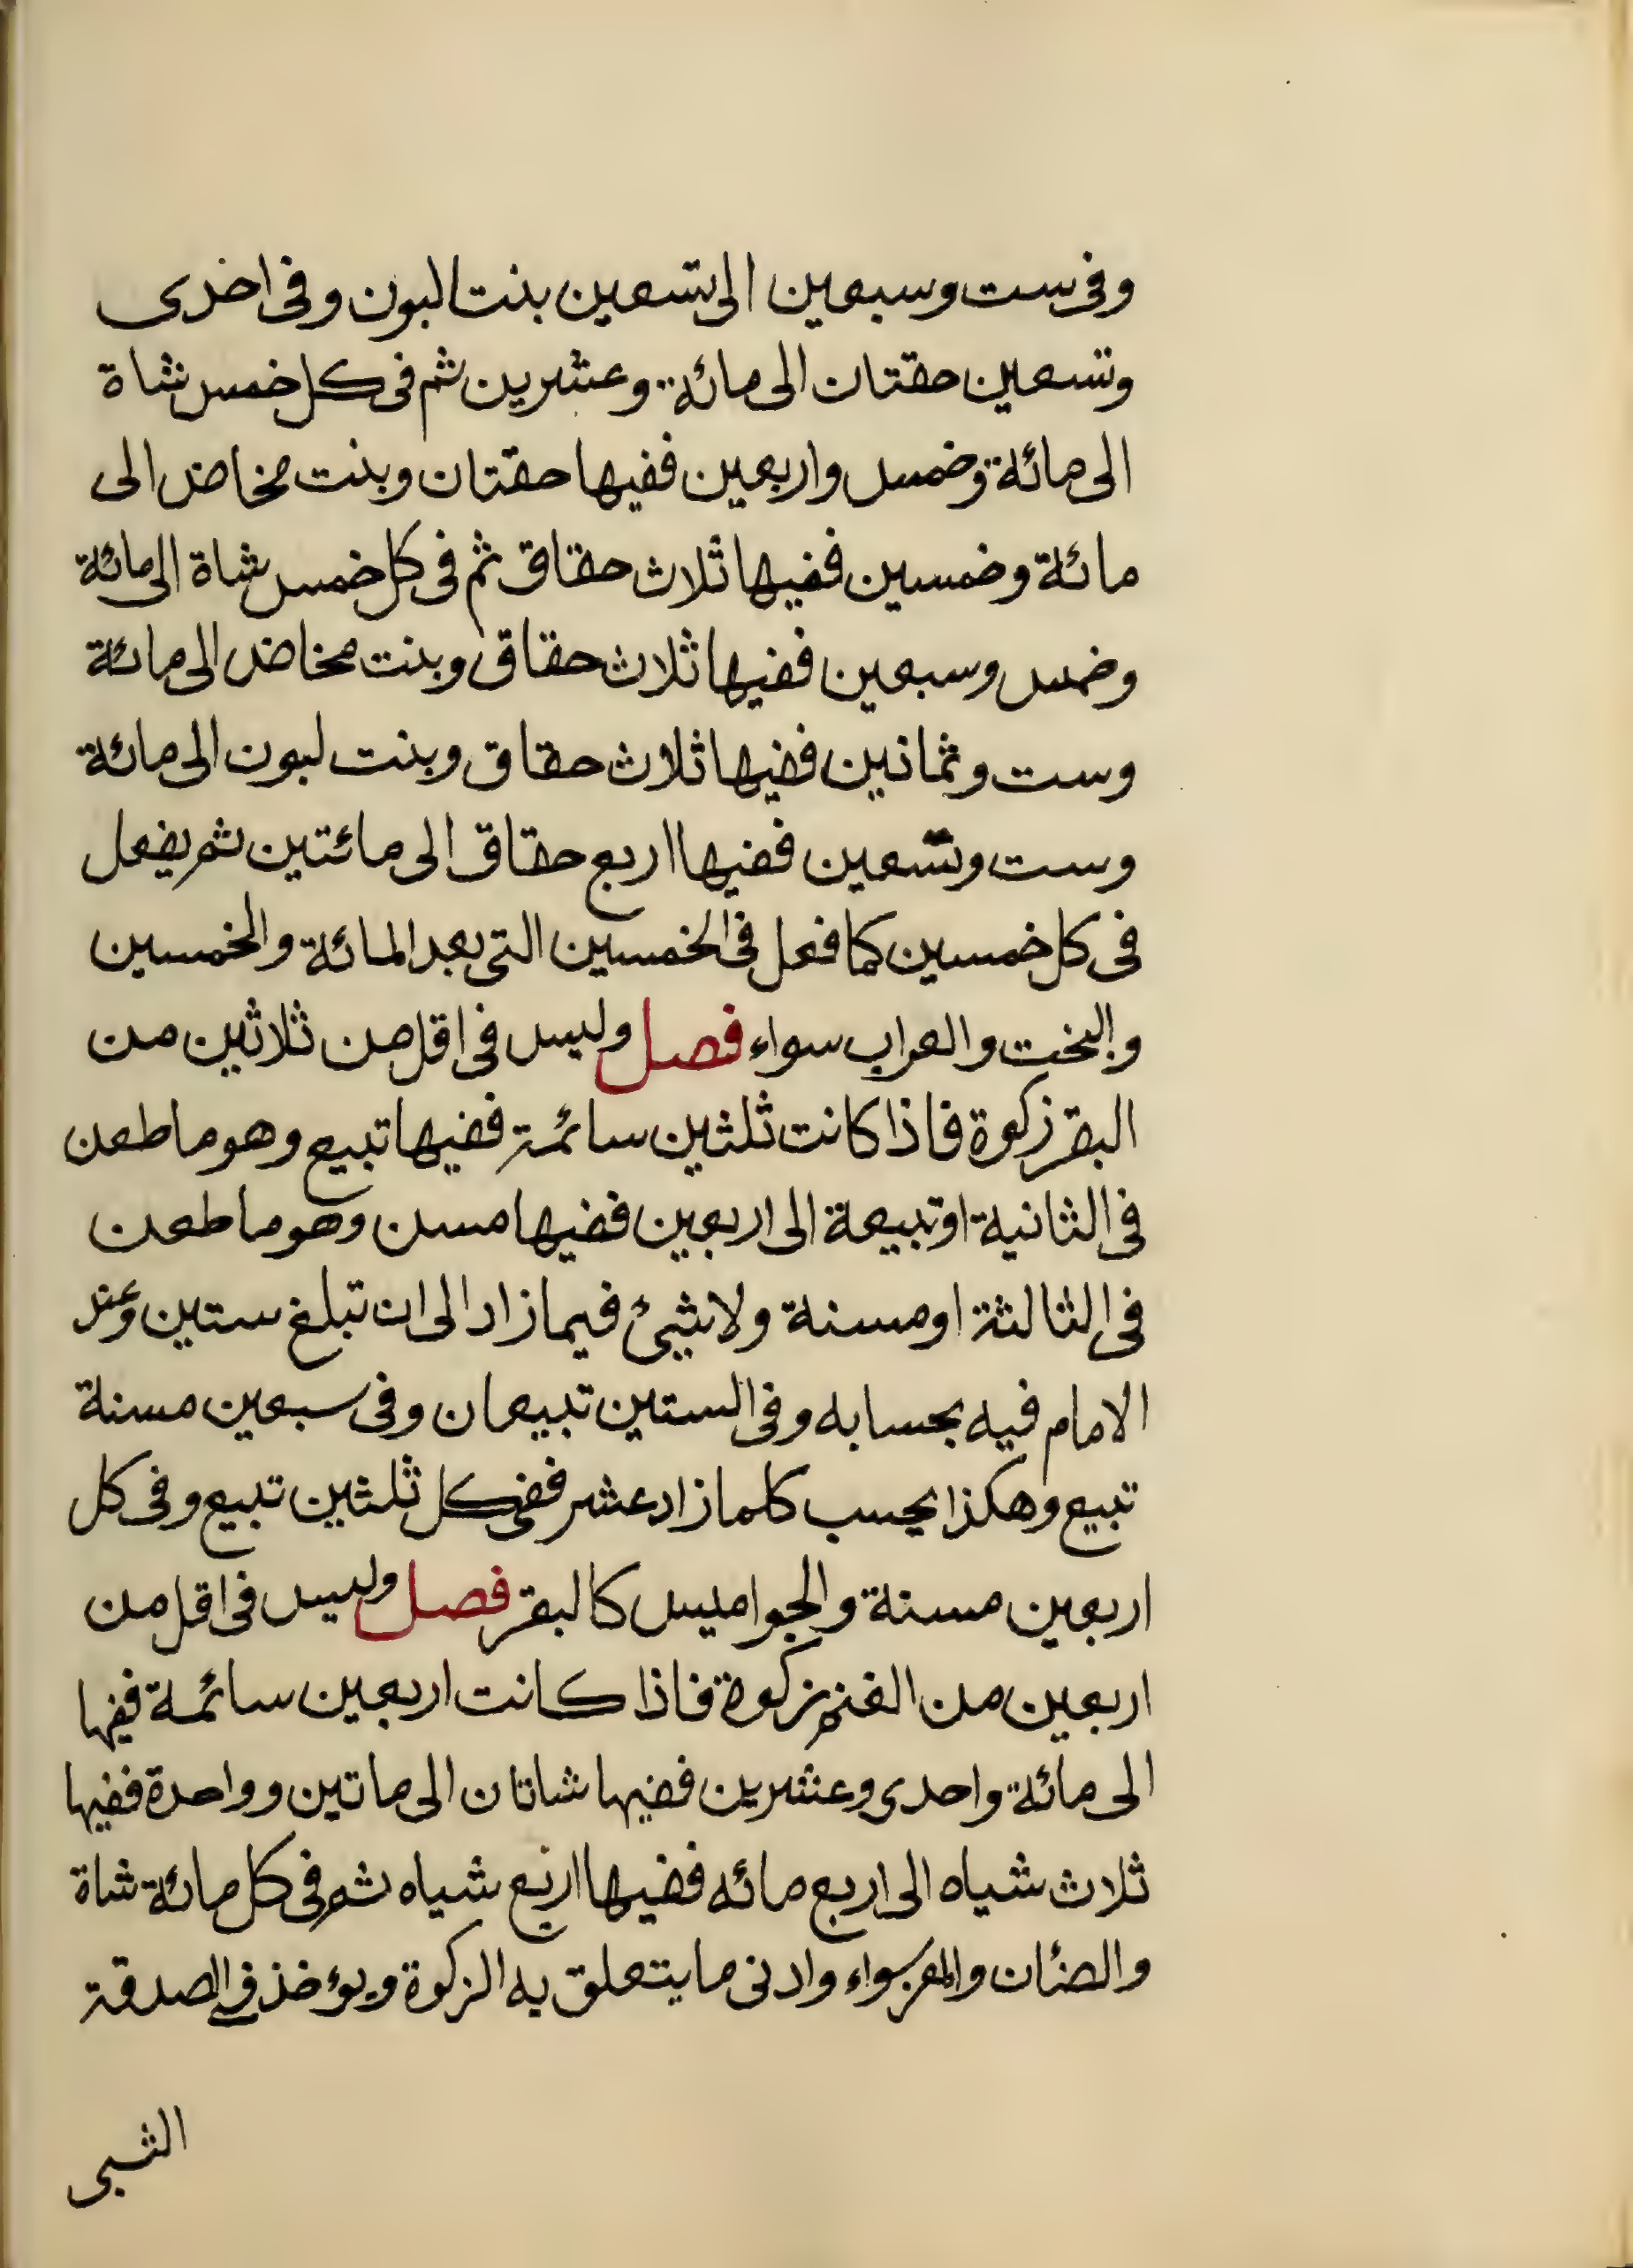 وفى ست وسبعين الى تسعين بنت البون وفى اخدى
وتسعين حقتان الى مائة وعشرين ثم فى كل خمس شاة
الى مائة وخمس واربعين ففيها حقتان وبنت مخاض الى
مائة وخمسين ففيها ثلاث حقاق ثم فى كل خمس شاة الى مائة
وخمس وسبعين ففيها ثلاث حقاق وبنت مخاض الى مائة
وست وثمانين ففيها ثلاث حقاق وبنت لبون الى مائة
وست وتسعين ففيها اربع حقاق الى مائتين ثم يفعل
فى كل خمسين كما فعل فى الخمسين التى بعد المائة والخمسين
والبخت والعراب سواء فصل وليس فى اقل من ثلاثين من
البقر زكوة فاذا كانت ثلثين سائمة ففيها تبيع وهو ما طعن
فى الثانية او تبيعة الى اربعين ففيها مسن وهو ما طعن
فى الثالثة او مسنة ولا شيئ فيما زاد الى ان تبلغ ستين وعند
الامام فيه بحسابه وفى الستين تبيعان وفى سبعين مسنة
تبيع وهكذا يحسب كلما زاد عشر ففى كل ثلثين تبيع وفى كل
اربعين مسنة والجواميس كالبقر فصل وليس فى اقل من
اربعين من الغنم زكوة فاذا كانت اربعين سائمة ففيها
الى مائة واحدى وعشرين ففيها شاتان الى ماتين وواحدة ففيها
ثلاث شياه الى اربع مائه ففيها اربع شياه ثم فى كل مائة شاة
والضئان والمعز سواء وادنى ما يتعلق به الزكوة ويؤخذ فى الصدقة
الثبى